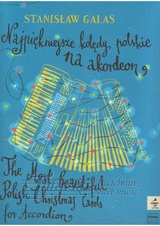 STANISŁAW GALAS
Najpiękniejsze kolędy polskie
na akordeon
The Most beautiful
Polish Christmas Carols
for Accordion